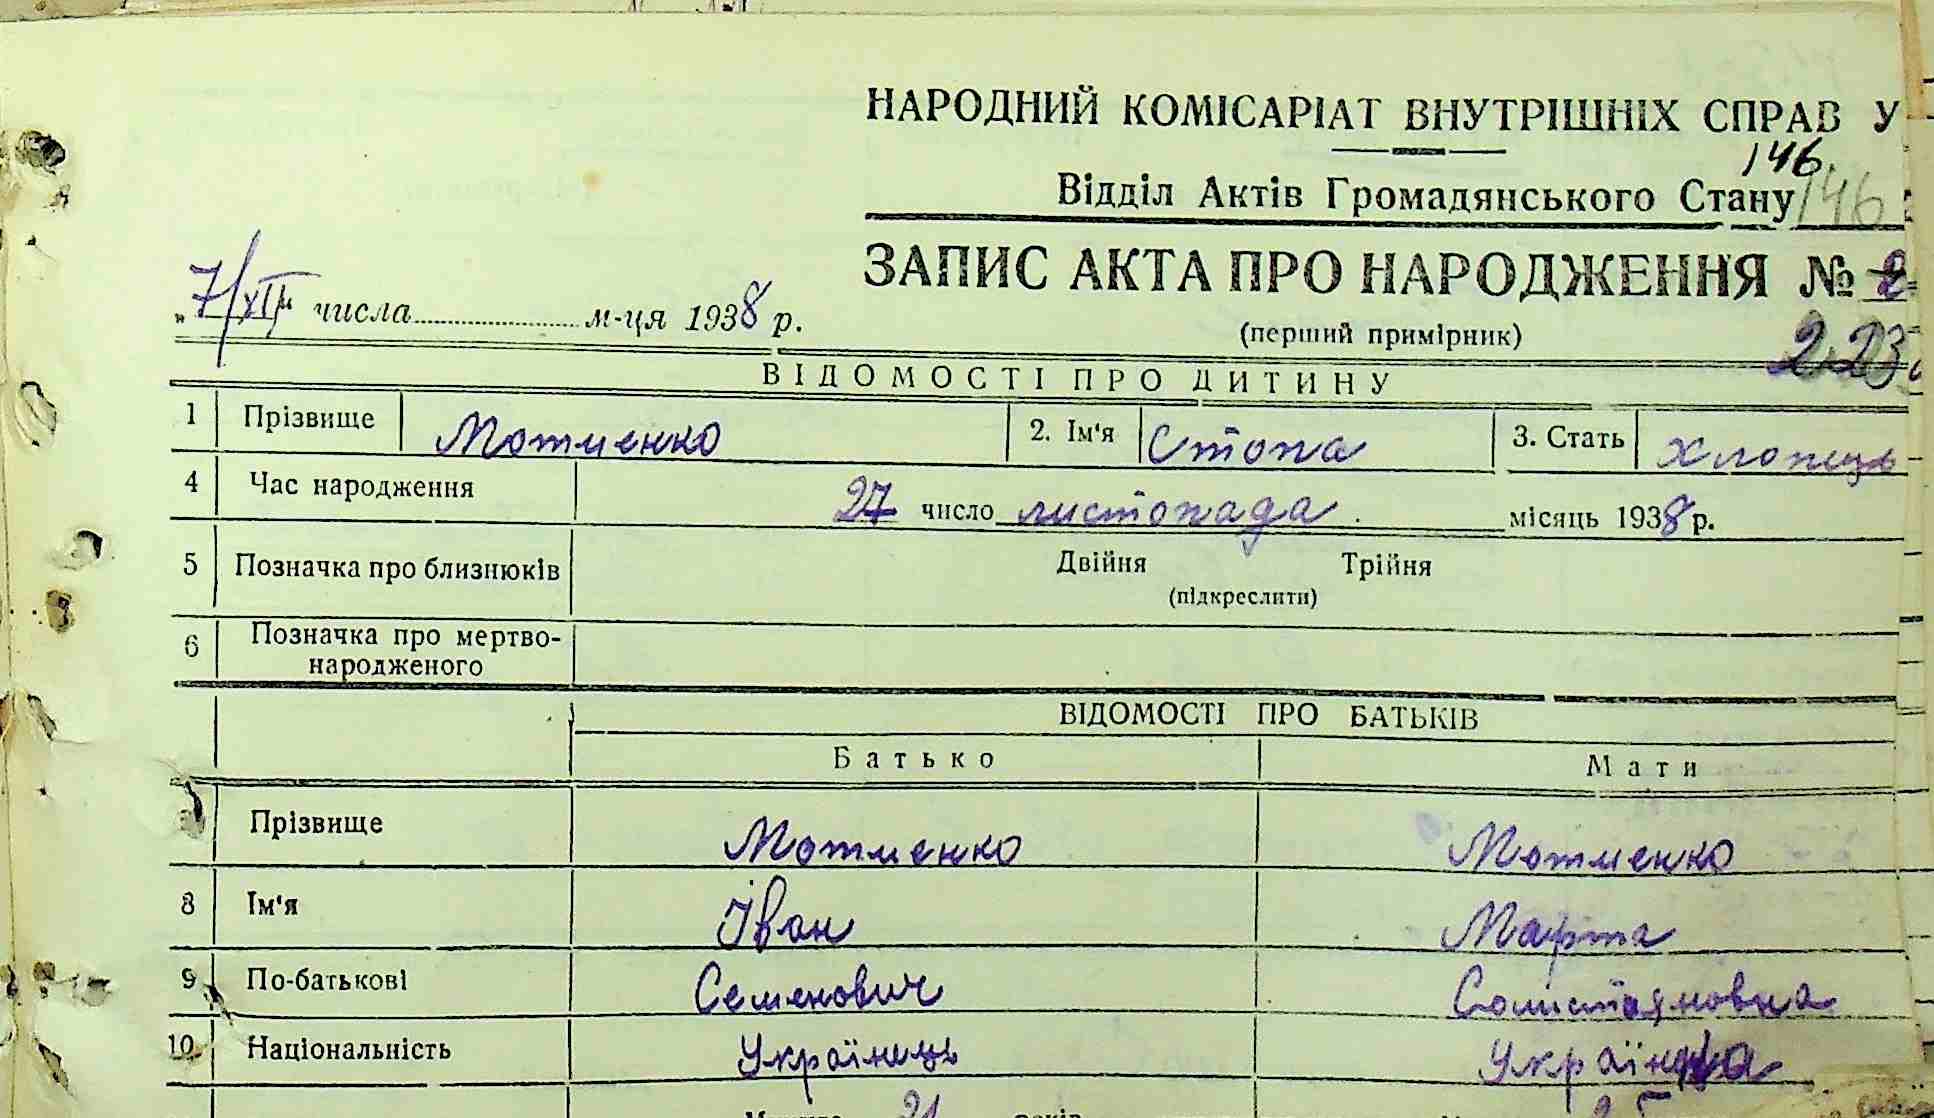 НАРОДНИЙ КОМІСАРІАТ ВНУТРІШНІХ СПРАВ У
146.
Відділ Актів Громадянського Стану 146
ЗАПИС АКТА ПРО НАРОДЖЕННЯ №
„7/XII числа м-ця 1938 р.
(перший примірник)
223
ВІДОМОСТІ ПРО ДИТИНУ
1 Прізвище Мотменко 2. Ім'я Стопа 3. Стать Хлопець
4 Час народження 27 число листопада місяць 1938 р.
5 Позначка про близнюків Двійня Трійня
(підкреслити)
6 Позначка про мертво-
народженого
ВІДОМОСТІ ПРО БАТЬКІВ
Батько Мати
Прізвище Мотменко Мотменко
8 Ім'я Іван Марта
9 По-батькові Семенович
10 Національність Українець Українка
21 років 25